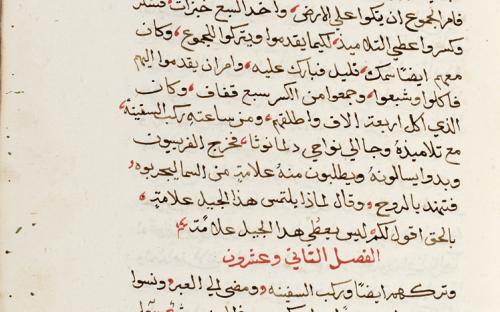 فامر الجموع ان يتكوا علي الارض، واخد السبع خبزات، فشكر
وكسر واعطي التلاميذ، لكيما يقدموا ويتركوا للجموع، وكان
معهم ايضا سمك قليل فبارك عليه، وامر ان يقدموا اليهم
فاكلوا وشبعوا، وجمعوا من الكسر سبع قفاف، وكان
الذي اكل اربعة الاف واطلقهم، ومن ساعته ركب السفينة،
مع تلاميذه وجا الي نواحي دلمانوثا، فخرج الفريسيون
وبدوا يسالونه ويطلبون منه علامة من السما ليجربوه،
فتنهد بالروح، وقال لماذا يلتمس هذا الجيل علامة،
بالحق اقول لكم ليس يعطي هدا الجيل علامة،
الفصل الثاني وعشرون
وتركهم ايضا وركب السفينه، ومضي الي العبر، ونسوا